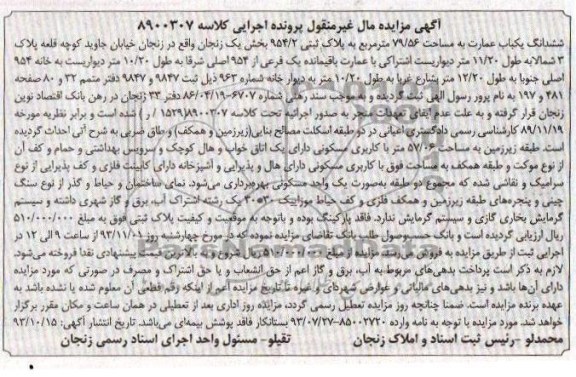 آگهی مزایده مال غیرمنقول پرونده اجرایی کلاسه ۸۹۰۰۳۰۷
ششدانگ یکباب عمارت به مساحت ۷۹/۵۶ مترمربع به پلاک ثبتی ۹۵۴/۲ بخش یک زنجان واقع در زنجان خیابان جاوید کوچه قلعه پلاک
۳ شمالاً به طول ۱۱/۲۰ متر دیواریست اشتراکی با عمارت باقیمانده یک فرعی از ۹۵۴ اصلی شرقا به طول ۱۰/۲۰ متر دیواریست به خانه ۹۵۴
اصلی جنوبا به طول ۱۲/۲۰ متر پتنارع غربا به طول ۱۰/۲۰ متر به دیوار خانه شماره ۹۶۳ ذیل ثبت ۹۸۴۷ و ۹۸۴۷ دفتر متمم ۳۲ و ۸۰ صفحه
۴۸۱ و ۱۹۷ به نام پرور رسول الهی ثبت گردیده و به موجب سند رهنی شماره ۶۷۰۷-۸۶/۰۴/۱۹ دفتر ۳۳ زنجان در رهن بانک اقتصاد نوین
زنجان قرار گرفته و به علت عدم ایفای تعهدات منجر به صدور اجرائیه تحت کلاسه ۸۹۰۰۳۰۷ (۱۵۲۹ / ر) شده است و برابر نظریه مورخه
۸۹/۱۱/۱۹ کارشناسی رسمی دادگستری اعیانی در دو طبقه اسکلت مصالح بنایی (زیرزمین و همکف) و طاق ضربی به شرح آتی احداث گردیده
است. طبقه زیرزمین به مساحت ۵۷/۰۶ متر با کاربری مسکونی دارای یک اتاق خواب و هال کوچک و سرویس بهداشتی و حمام و کف آن
از نوع موکت و طبقه همکف به مساحت فوق با کاربری مسکونی دارای هال و پذیرایی و آشپزخانه دارای کابینت فلزی و کف پذیرایی از نوع
سرامیک و نقاشی شده که مجموع دو طبقه به‌صورت یک واحد مسکونی بهره‌برداری می‌شود. نمای ساختمان و حیاط و گذر از نوع سنگ
چینی و پنجره‌های طبقه زیرزمین و همکف فلزی و کف حیاط موزاییک ۳۰*۳۰ یک رشته اشتراک آب، برق و گاز شهری داشته و سیستم
گرمایش بخاری گازی و سیستم گرمایش ندارد. فاقد پارکینگ بوده و باتوجه به موقعیت و کیفیت پلاک ثبتی فوق به مبلغ ۵۱۰/۰۰۰/۰۰۰
ریال ارزیابی گردیده است و بانک جهت وصول طلب بانک تقاضای مزایده نموده که در مورخ چهارشنبه روز ۹۳/۱۱/۰۱ از ساعت ۹ الی ۱۲ در
اجرایی ثبت از طریق مزایده به فروش می‌رسد. مزایده از مبلغ ۵۱۰/۰۰۰/۰۰۰ ریال شروع و به بالاترین قیمت پیشنهادی نقدا فروخته می‌شود.
لازم به ذکر است پرداخت بدهی‌های مربوط به آب، برق و گاز اعم از حق انشعاب و یا حق اشتراک و مصرف در صورتی که مورد مزایده
دارای آن‌ها باشد و نیز بدهی‌های مالیاتی و عوارض شهرداری و غیره تا تاریخ مزایده اعم از اینکه رقم قطعی آن معلوم شده یا نشده باشد به
عهده برنده مزایده است. ضمنا چنانچه روز مزایده تعطیل رسمی گردد، مزایده روز اداری بعد از تعطیلی در همان ساعت و مکان مقرر برگزار
خواهد شد. مورد مزایده با توجه به نامه وارده ۸۵۰۰۲۷۲۰-۹۳/۰۷/۲۷ بستانکار فاقد پوشش بیمه‌ای می‌باشد. تاریخ انتشار آگهی: ۹۳/۱۰/۱۵
محمدلو -رئیس ثبت اسناد و املاک زنجان تقیلو- مسئول واحد اجرای اسناد رسمی زنجان